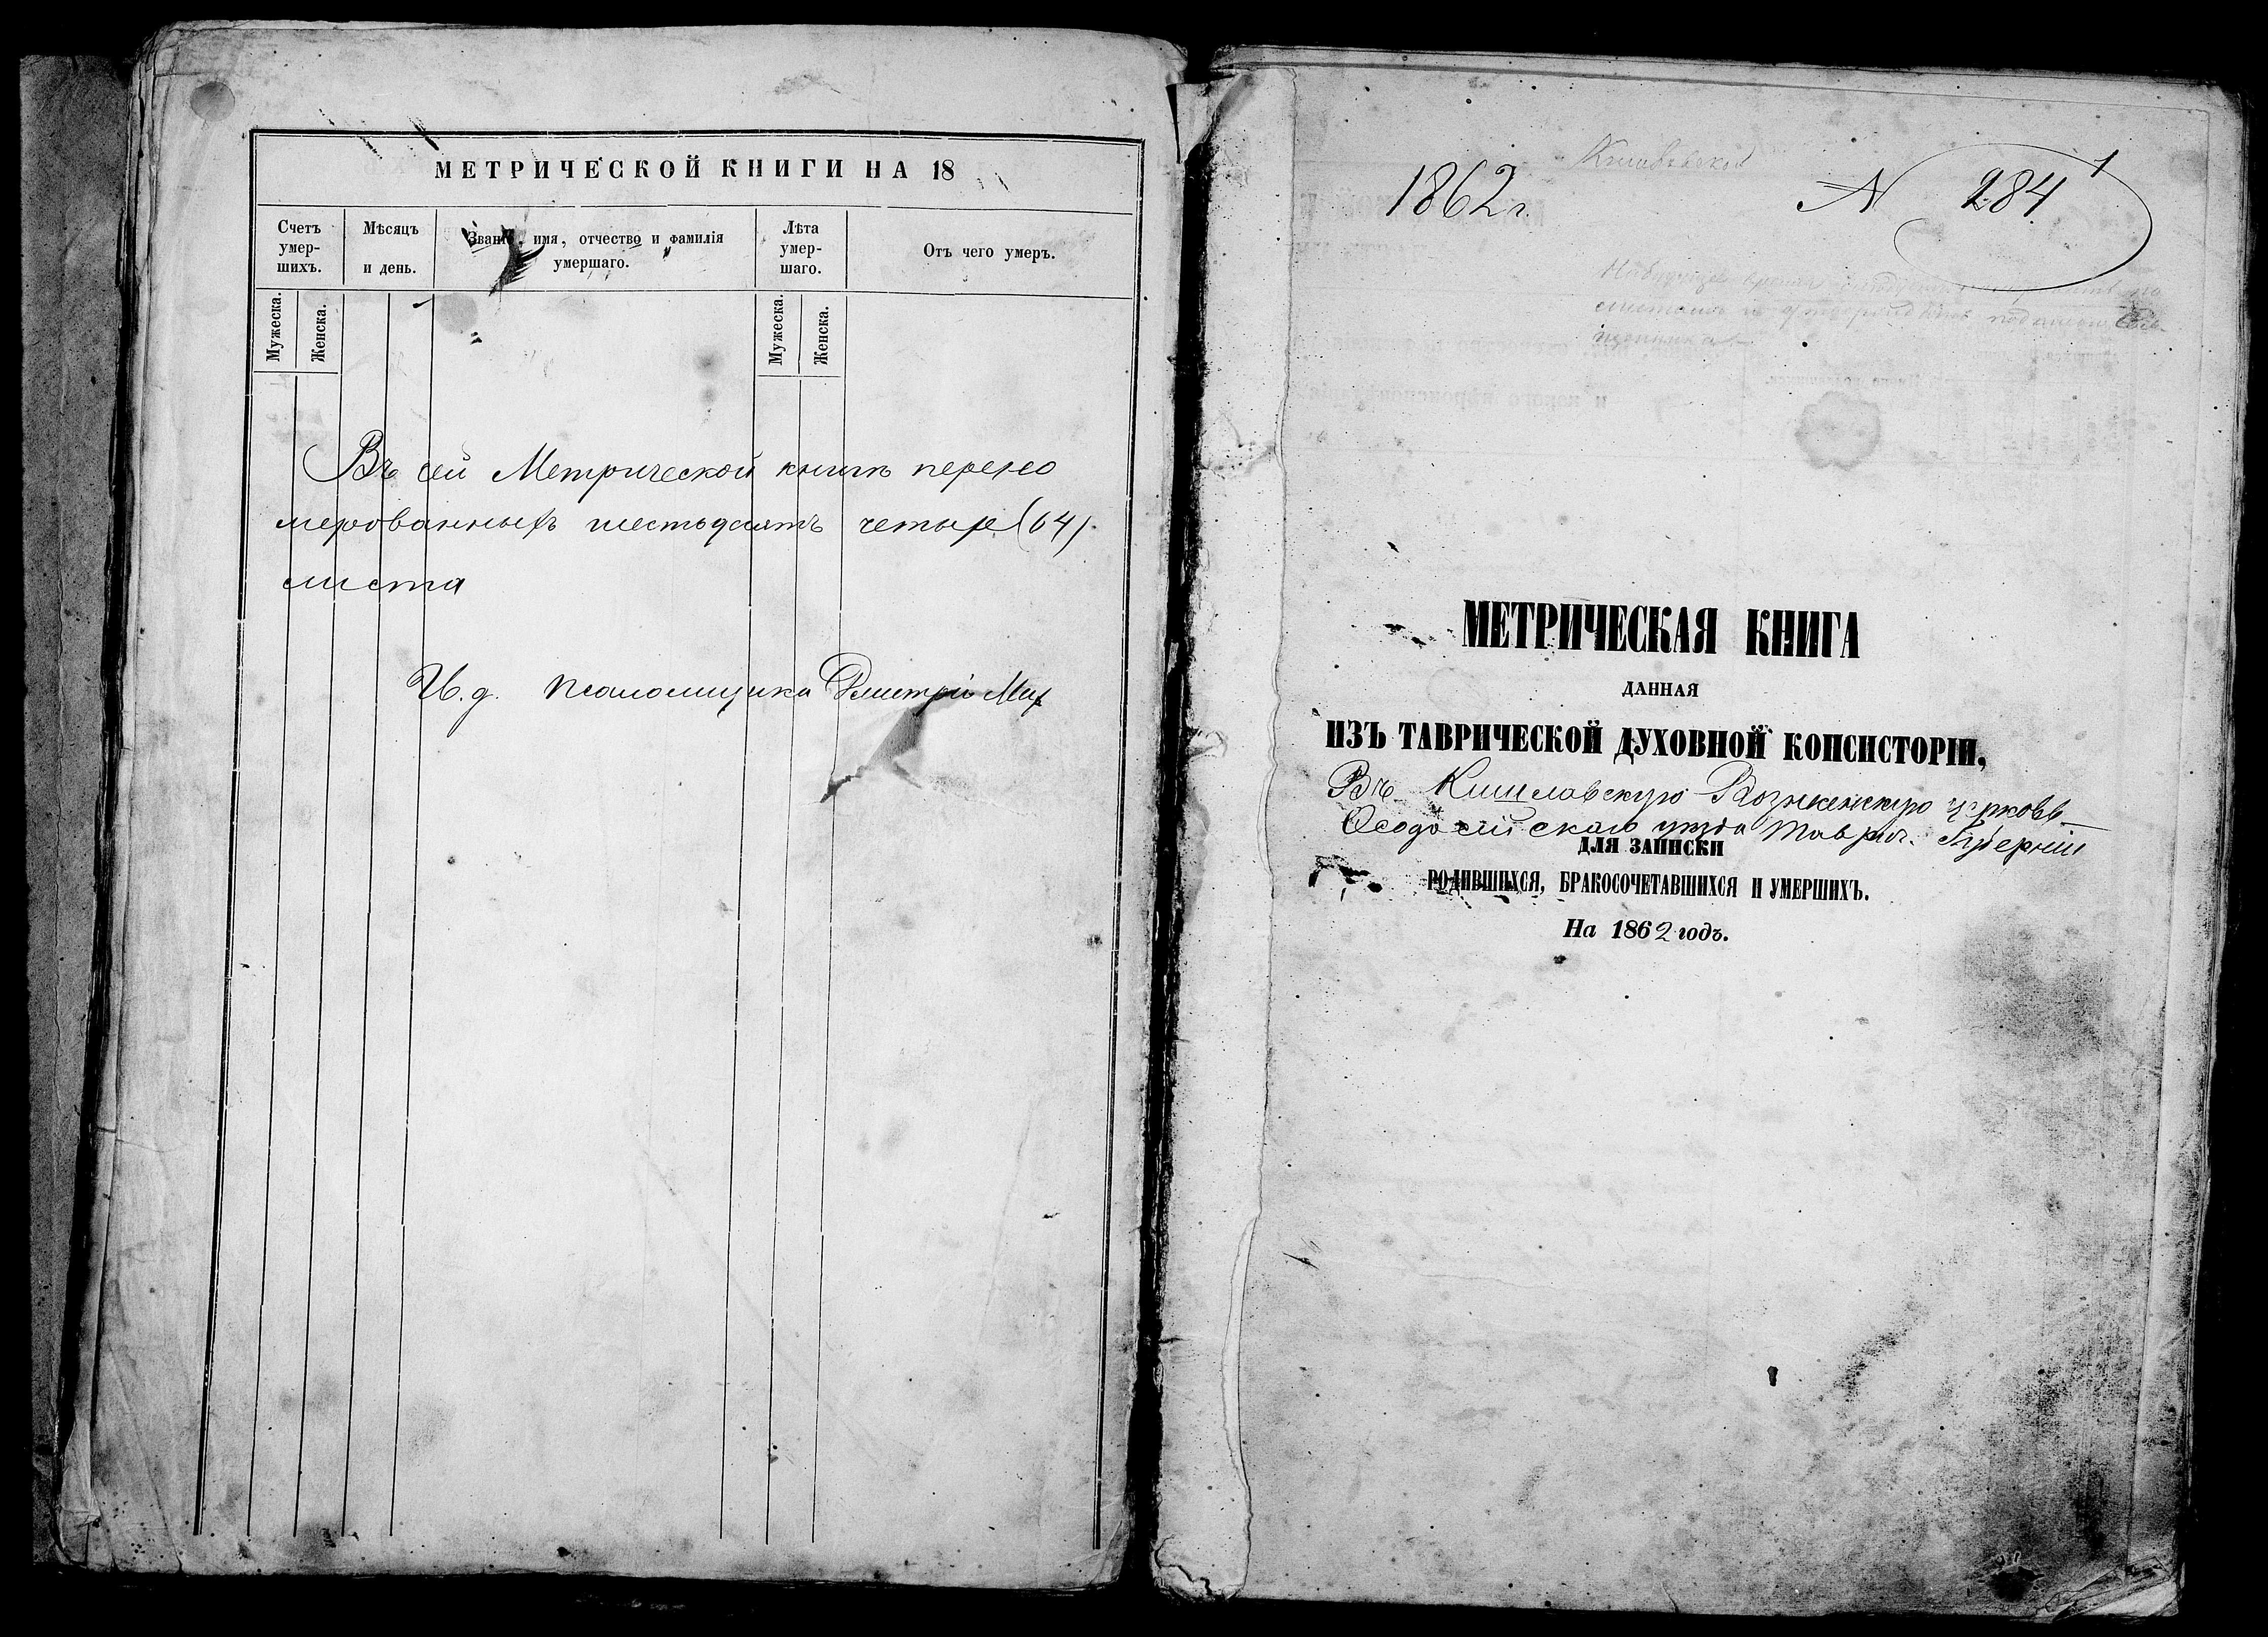 МЕТРИЧЕСКОЙ КНИГИ НА 18
Счетъ умер- шихъ.
Мѣсяцъ и день.
Званіе, имя, отчество и фамилія умершаго.
Лѣта умер- шаго.
Отъ чего умеръ.
Мужеска.
Женска.
Мужеска.
Женска.
Въ сей Метрической книгѣ перено
мерованныхъ шестьдесятъ четыре (64)
листа
И. д. псаломщика Дмитрій Мих
1862 г.
N 284
1
МЕТРИЧЕСКАЯ КНИГА
ДАННАЯ
ИЗЪ ТАВРИЧЕСКОЙ ДУХОВНОЙ КОНСИСТОРІИ,
Въ Кишлавскую церковь
Ѳеодосійскаго уѣзда Таврич. Губерніи
ДЛЯ ЗАПИСКИ
РОДИВШИХСЯ, БРАКОСОЧЕТАВШИХСЯ И УМЕРШИХЪ.
На 1862 годъ.